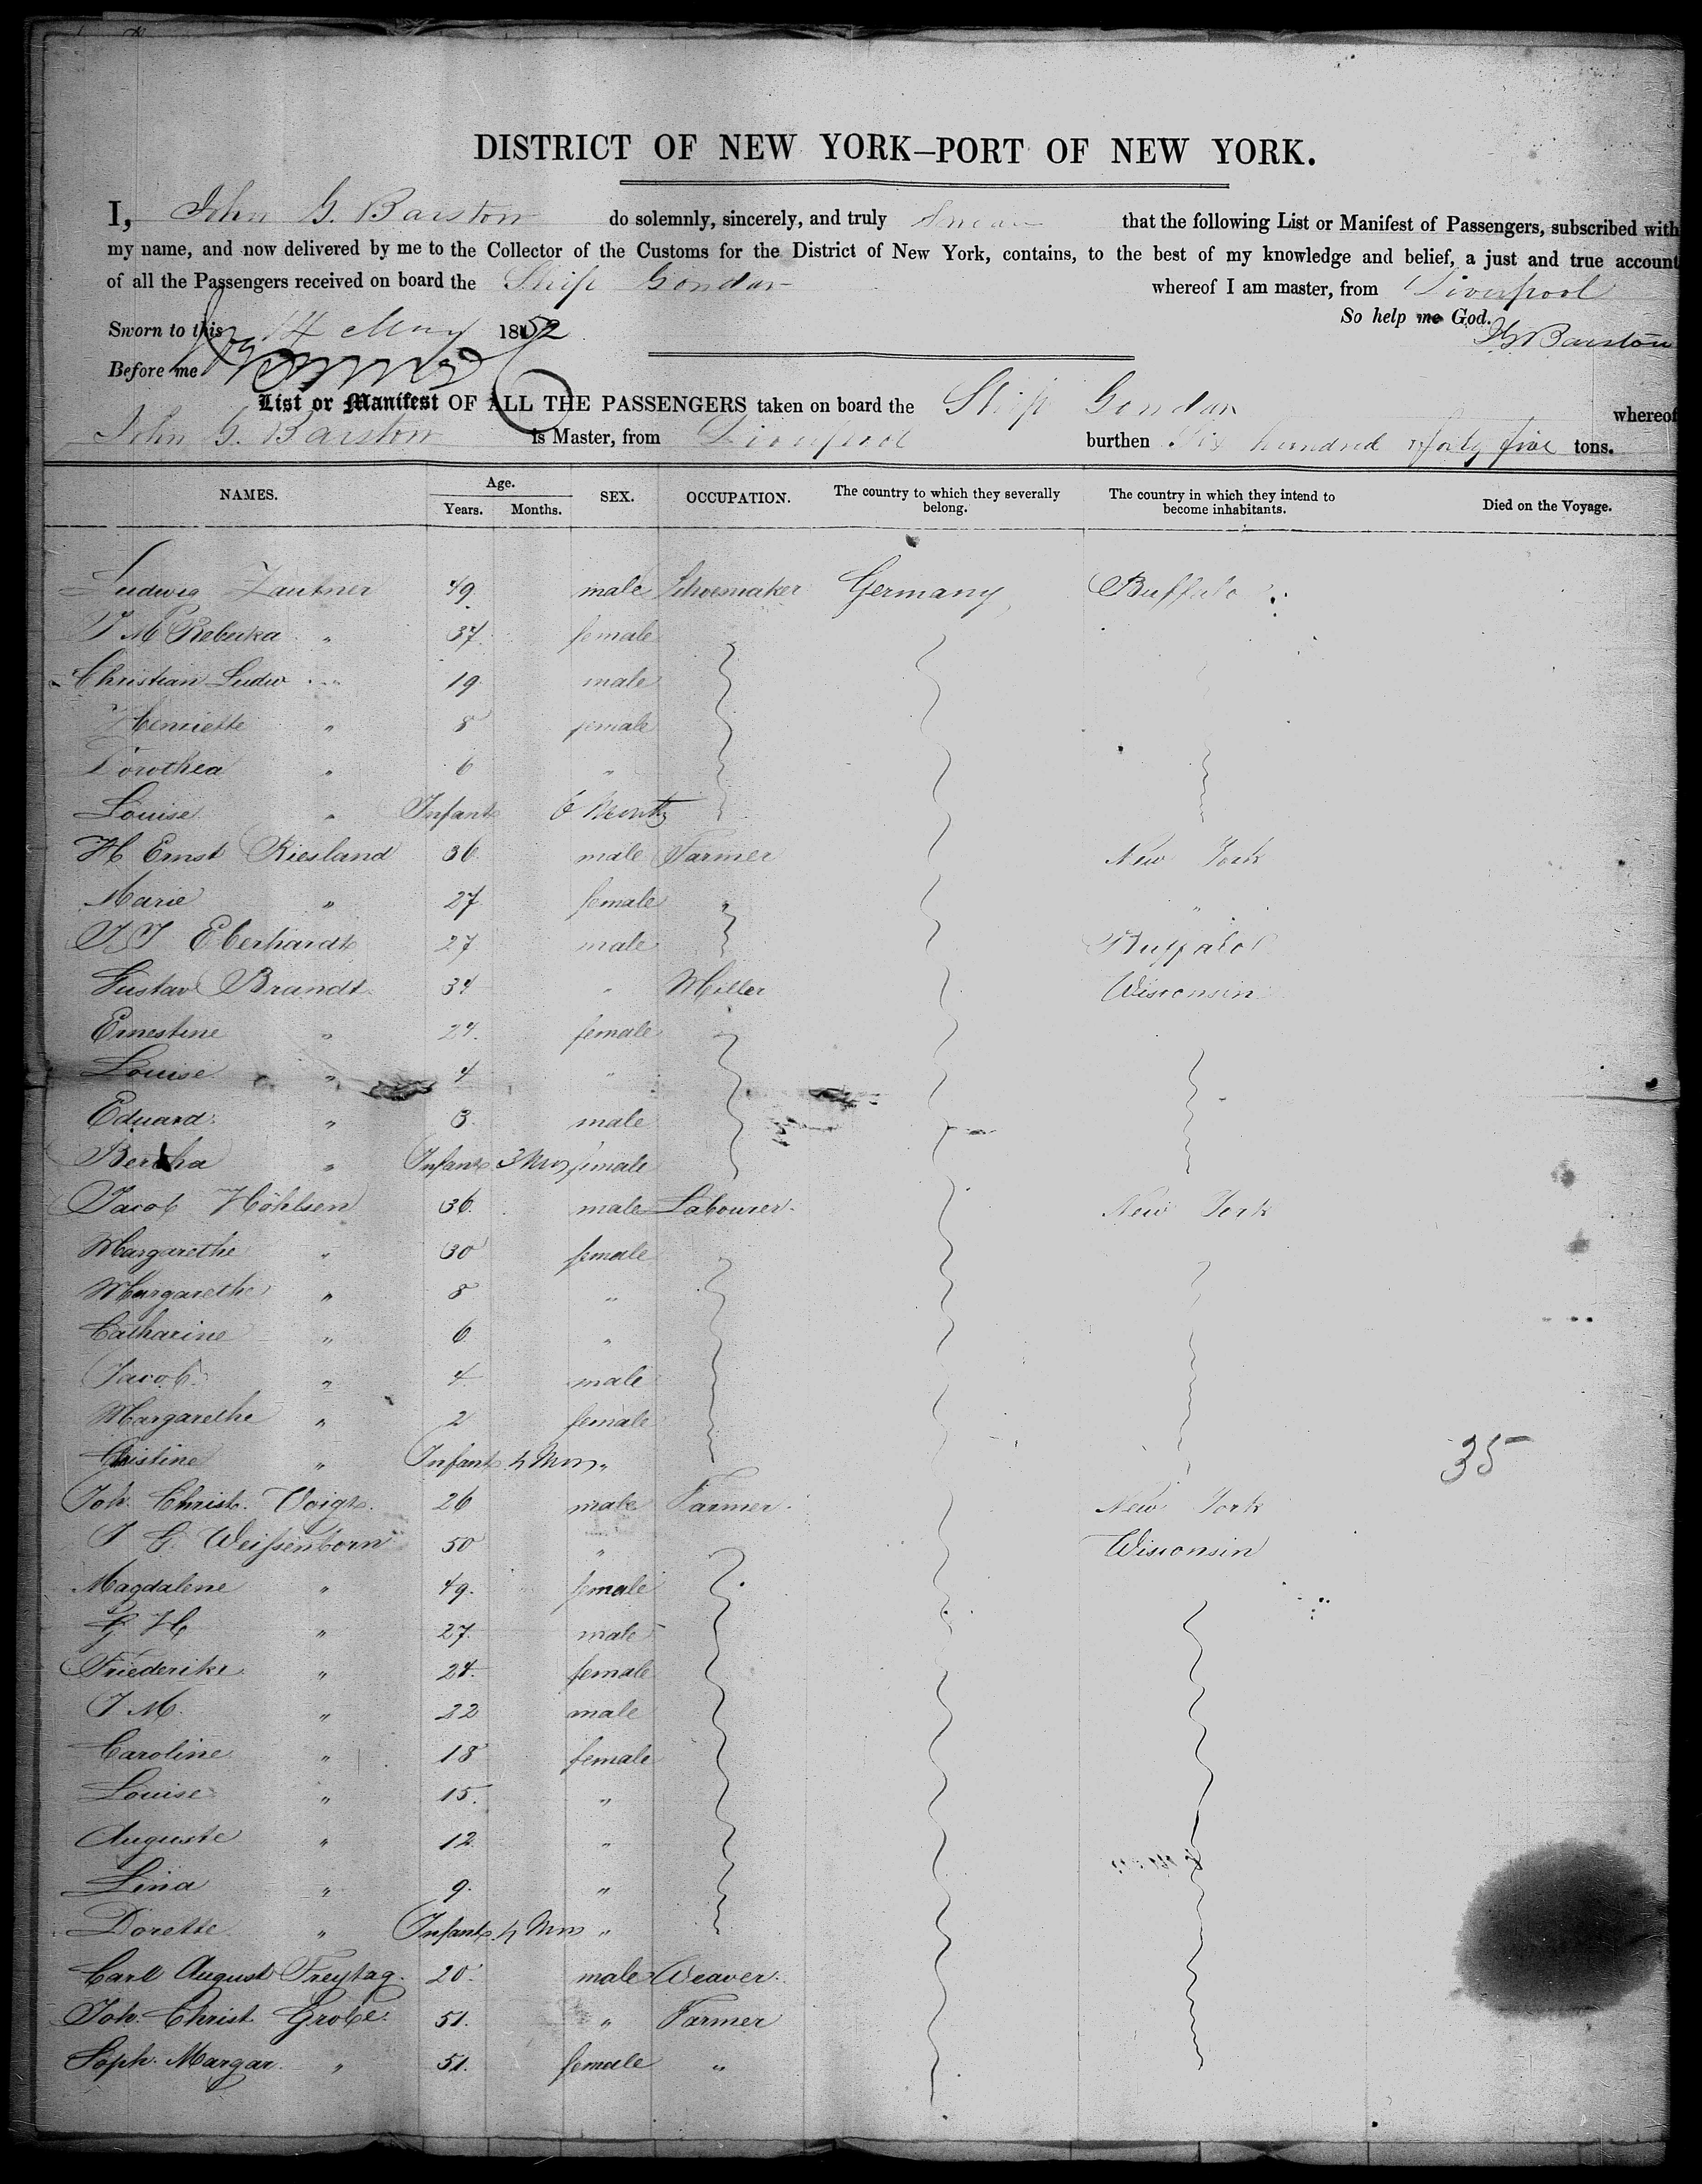 DISTRICT OF NEW YORK–PORT OF NEW YORK.
I, John G. Barstow do solemnly, sincerely, and truly Swear that the following List or Manifest of Passengers, subscribed with
my name, and now delivered by me to the Collector of the Customs for the District of New York, contains, to the best of my knowledge and belief, a just and true account
of all the Passengers received on board the Ship Gondar whereof I am master, from Liverpool
So help me God.
Sworn to this 14 May 1852
J G Barstow
Before me
List or Manifest OF ALL THE PASSENGERS taken on board the Ship Gondar whereof
John G. Barstow is Master, from Liverpool burthen Six hundred & forty five tons.
NAMES. Age. Years. Months. SEX. OCCUPATION. The country to which they severally belong. The country in which they intend to become inhabitants. Died on the Voyage.
Ludwig Zautner 49 male Shoemaker Germany Buffalo
J M Rebecka " 37 female
Christian Ludw " 19 male
Henriette " 8 female
Dorothea " 6 "
Louise " Infant 6 Months
H Ernst Riesland 36 male Farmer New York
Marie " 27 female " "
J J Eberhardt 27 male Buffalo
Gustav Brandt 34 " Miller Wisconsin
Ernestine " 24 female
Louise " 4 "
Eduard " 3 male
Bertha " Infant 3 Mos female
Jacob Höhlsen 36 male Labourer New York
Margarethe " 30 female
Margarethe " 8 "
Catharine " 6 "
Jacob " 4 male
Margarethe " 2 female
Christine " Infant 4 Mos "
35
Joh. Christ. Voigt. 26 male Farmer New York
J G Weißenborn 50 " Wisconsin
Magdalene " 49 female
G H " 27 male
Friederike " 24 female
J M " 22 male
Caroline " 18 female
Louise " 15 "
Auguste " 12 "
Lina " 9 "
Dorette " Infant 4 Mos "
Carl August Freytag 20 male Weaver
Joh. Christ Grobe 51 " Farmer
Soph. Margar. " 51 female "